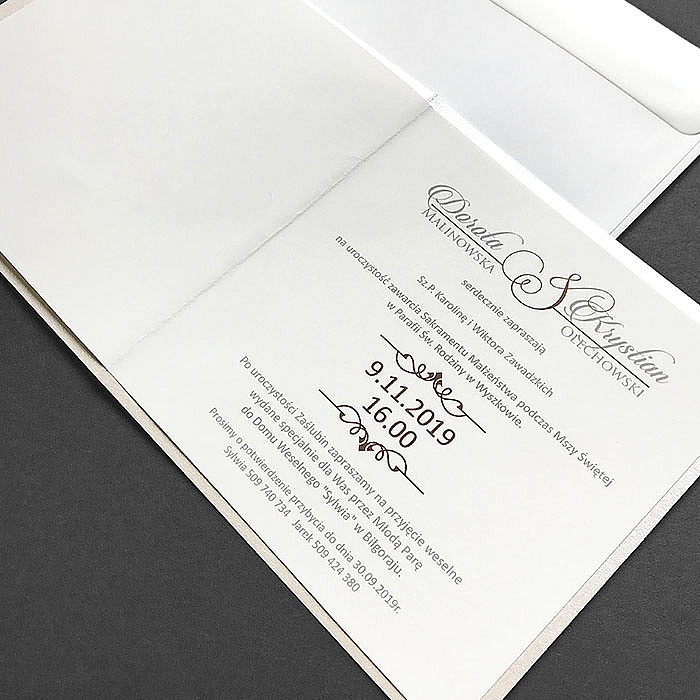 Dorota
MALINOWSKA
&
Krystian
OLECHOWSKI
serdecznie zapraszają
Sz.P. Karolinę i Wiktora Zawadzkich
na uroczystość zawarcia Sakramentu Małżeństwa podczas Mszy Świętej
w Parafii Św. Rodziny w Wyszkowie.
9.11.2019
16.00
Po uroczystości Zaślubin zapraszamy na przyjęcie weselne
wydane specjalnie dla Was przez Młodą Parę
do Domu Weselnego "Sylwia" w Biłgoraju.
Prosimy o potwierdzenie przybycia do dnia 30.09.2019r.
Sylwia 509 740 734 Jarek 509 424 380